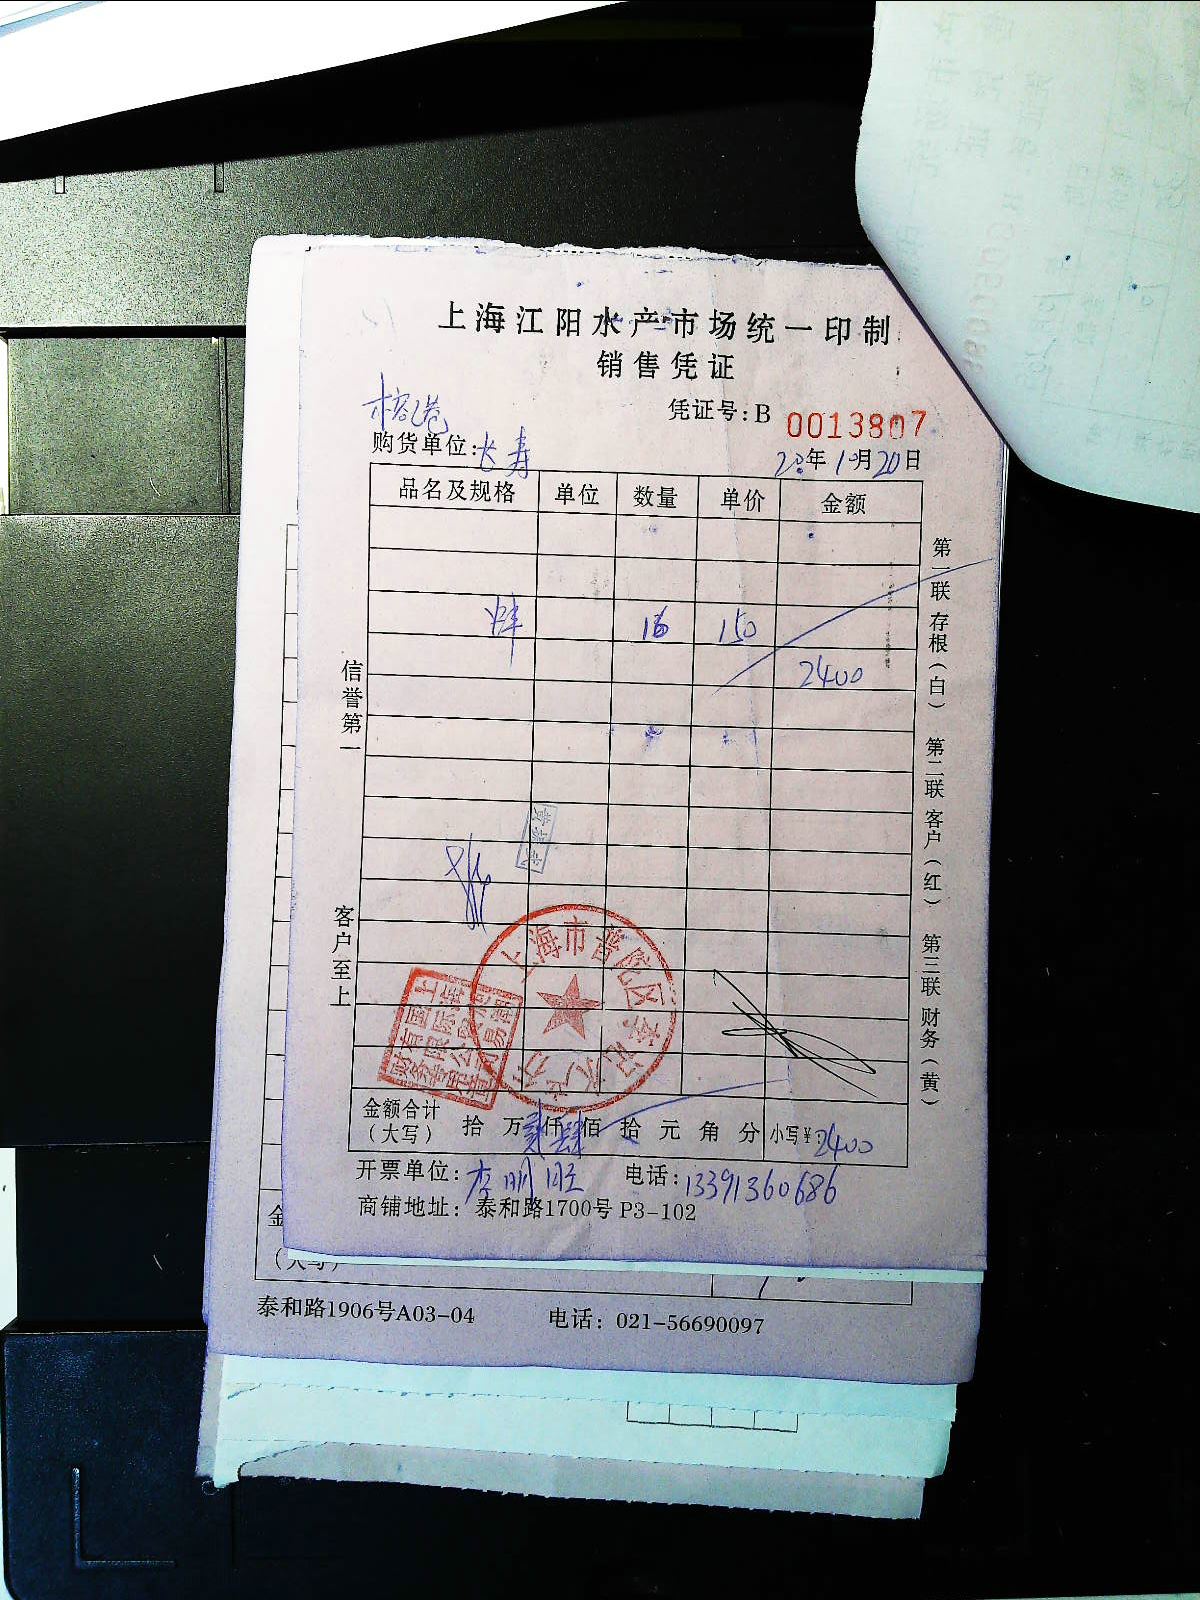 上海江阳水产市场统一印制
销售凭证
凭证号:B 0013807
榕港
购货单位:长寿
20年10月20日
品名及规格 单位 数量 单价 金额
16 150
2400
信誉第一
客户至上
第一联 存根(白) 第二联 客户(红) 第三联 财务(黄)
上海市普陀区
金额合计
(大写) 拾 万 贰仟 肆佰 拾 元 角 分 小写¥:2400
开票单位:李明旺 电话:13391360686
商铺地址: 泰和路1700号 P3-102
金
(大写)
泰和路1906号A03-04 电话: 021-56690097